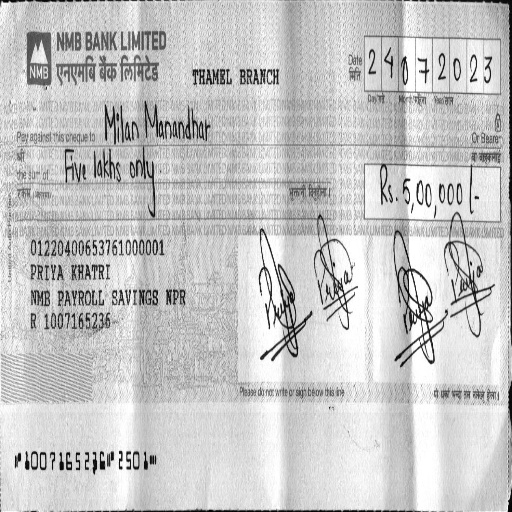 NMB BANK LIMITED
एनएमबि बैंक लिमिटेड
NMB
THAMEL BRANCH
Date
मिति
24072023
Pay against this cheque to Milan Manandhar
Or Bearer
the sum of Five lakhs only
Rs. 5,00,000/-
01220400653761000001
PRIYA KHATRI
NMB PAYROLL SAVINGS NPR
R 1007165236
Priya Priya Priya Priya
Please do not write or sign below this line
1007165236 2501